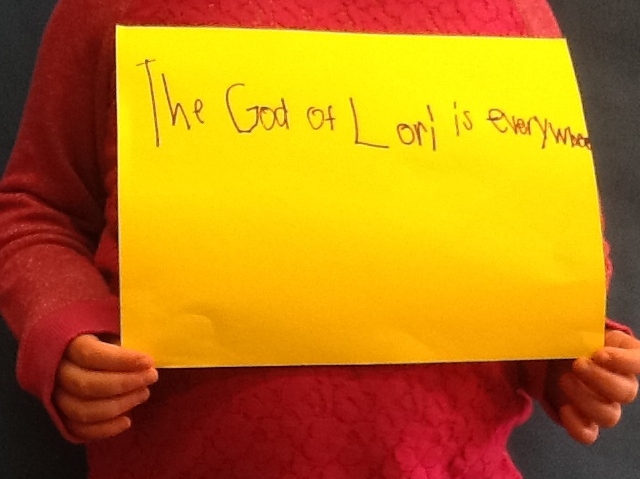 The God of Lori is everywhee